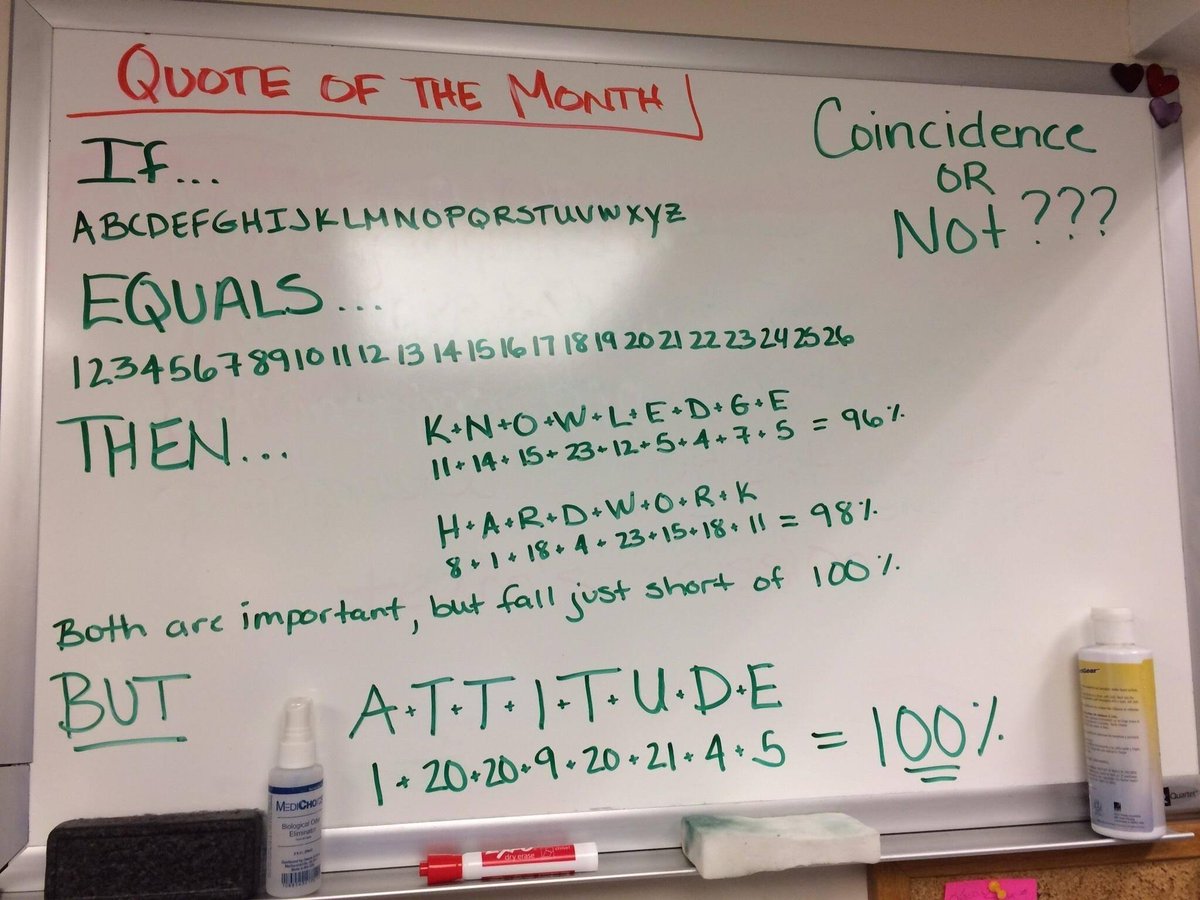 QUOTE OF THE MONTH
Coincidence
OR
Not ???
If...
ABCDEFGHIJKLMNOPQRSTUVWXYZ
EQUALS...
1 2 3 4 5 6 7 8 9 10 11 12 13 14 15 16 17 18 19 20 21 22 23 24 25 26
THEN...
K+N+O+W+L+E+D+G+E
11+14+15+23+12+5+4+7+5 = 96%
H+A+R+D+W+O+R+K
8+1+18+4+23+15+18+11 = 98%
Both are important, but fall just short of 100%
BUT
A+T+T+I+T+U+D+E
1+20+20+9+20+21+4+5 = 100%
MEDICHOICE
Biological Odor
Eliminator
EXPO
dry erase
Quartet